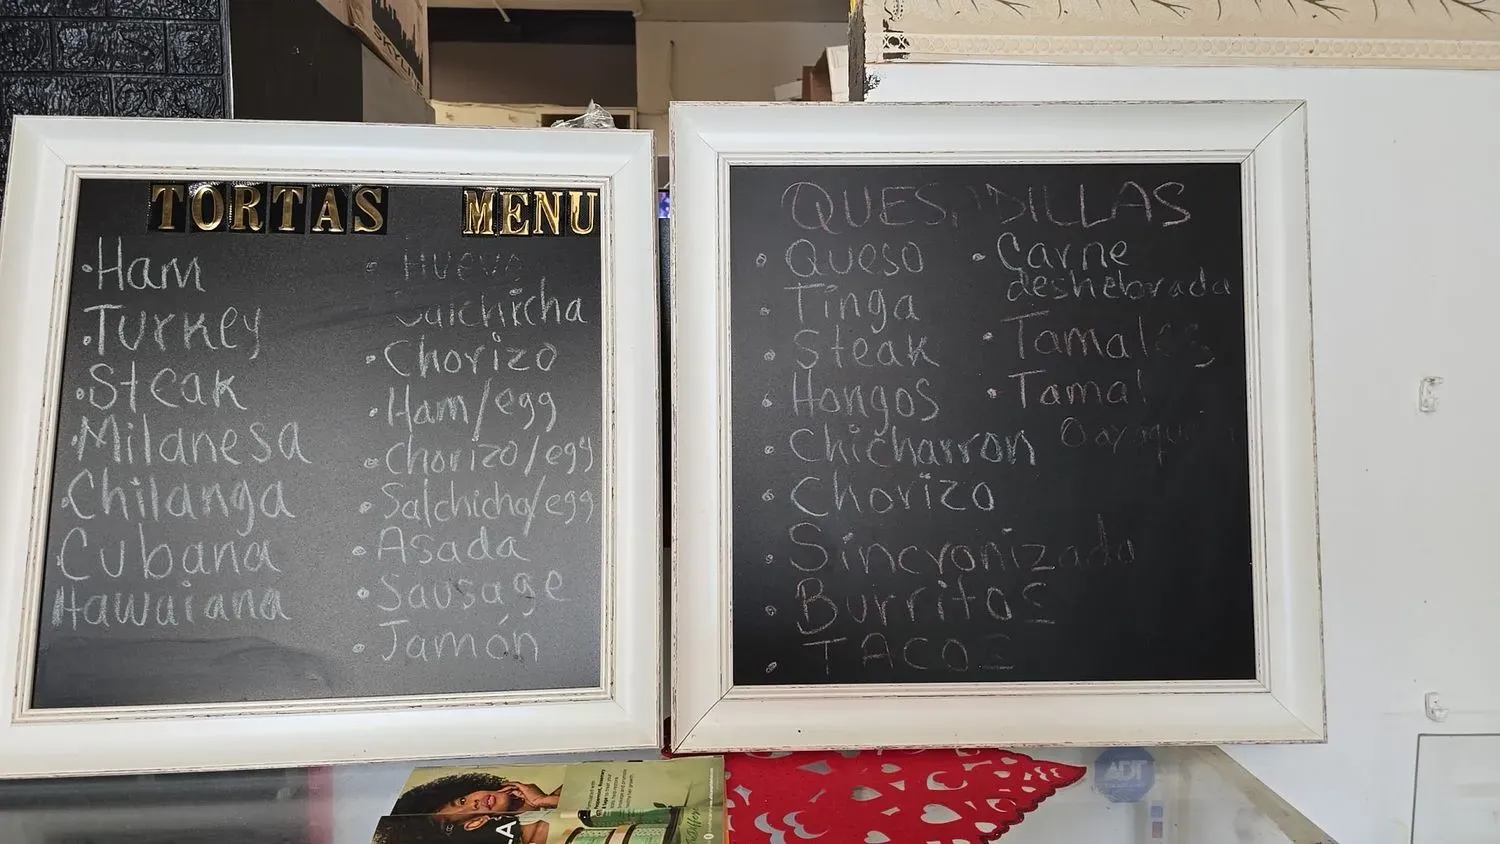 TORTAS MENU
• Ham
• Turkey
• Steak
• Milanesa
• Chilanga
Cubana
Hawaiana
• Huevo
Salchicha
• Chorizo
• Ham/egg
• Chorizo/egg
• Salchicha/egg
• Asada
• Sausage
• Jamón
QUESADILLAS
• Queso
• Tinga
• Steak
• Hongos
• Chicharron
• Chorizo
• Sincronizada
• Burritos
• TACOS
• Carne
deshebrada
• Tamales
• Tamal
SKYLI
ADT